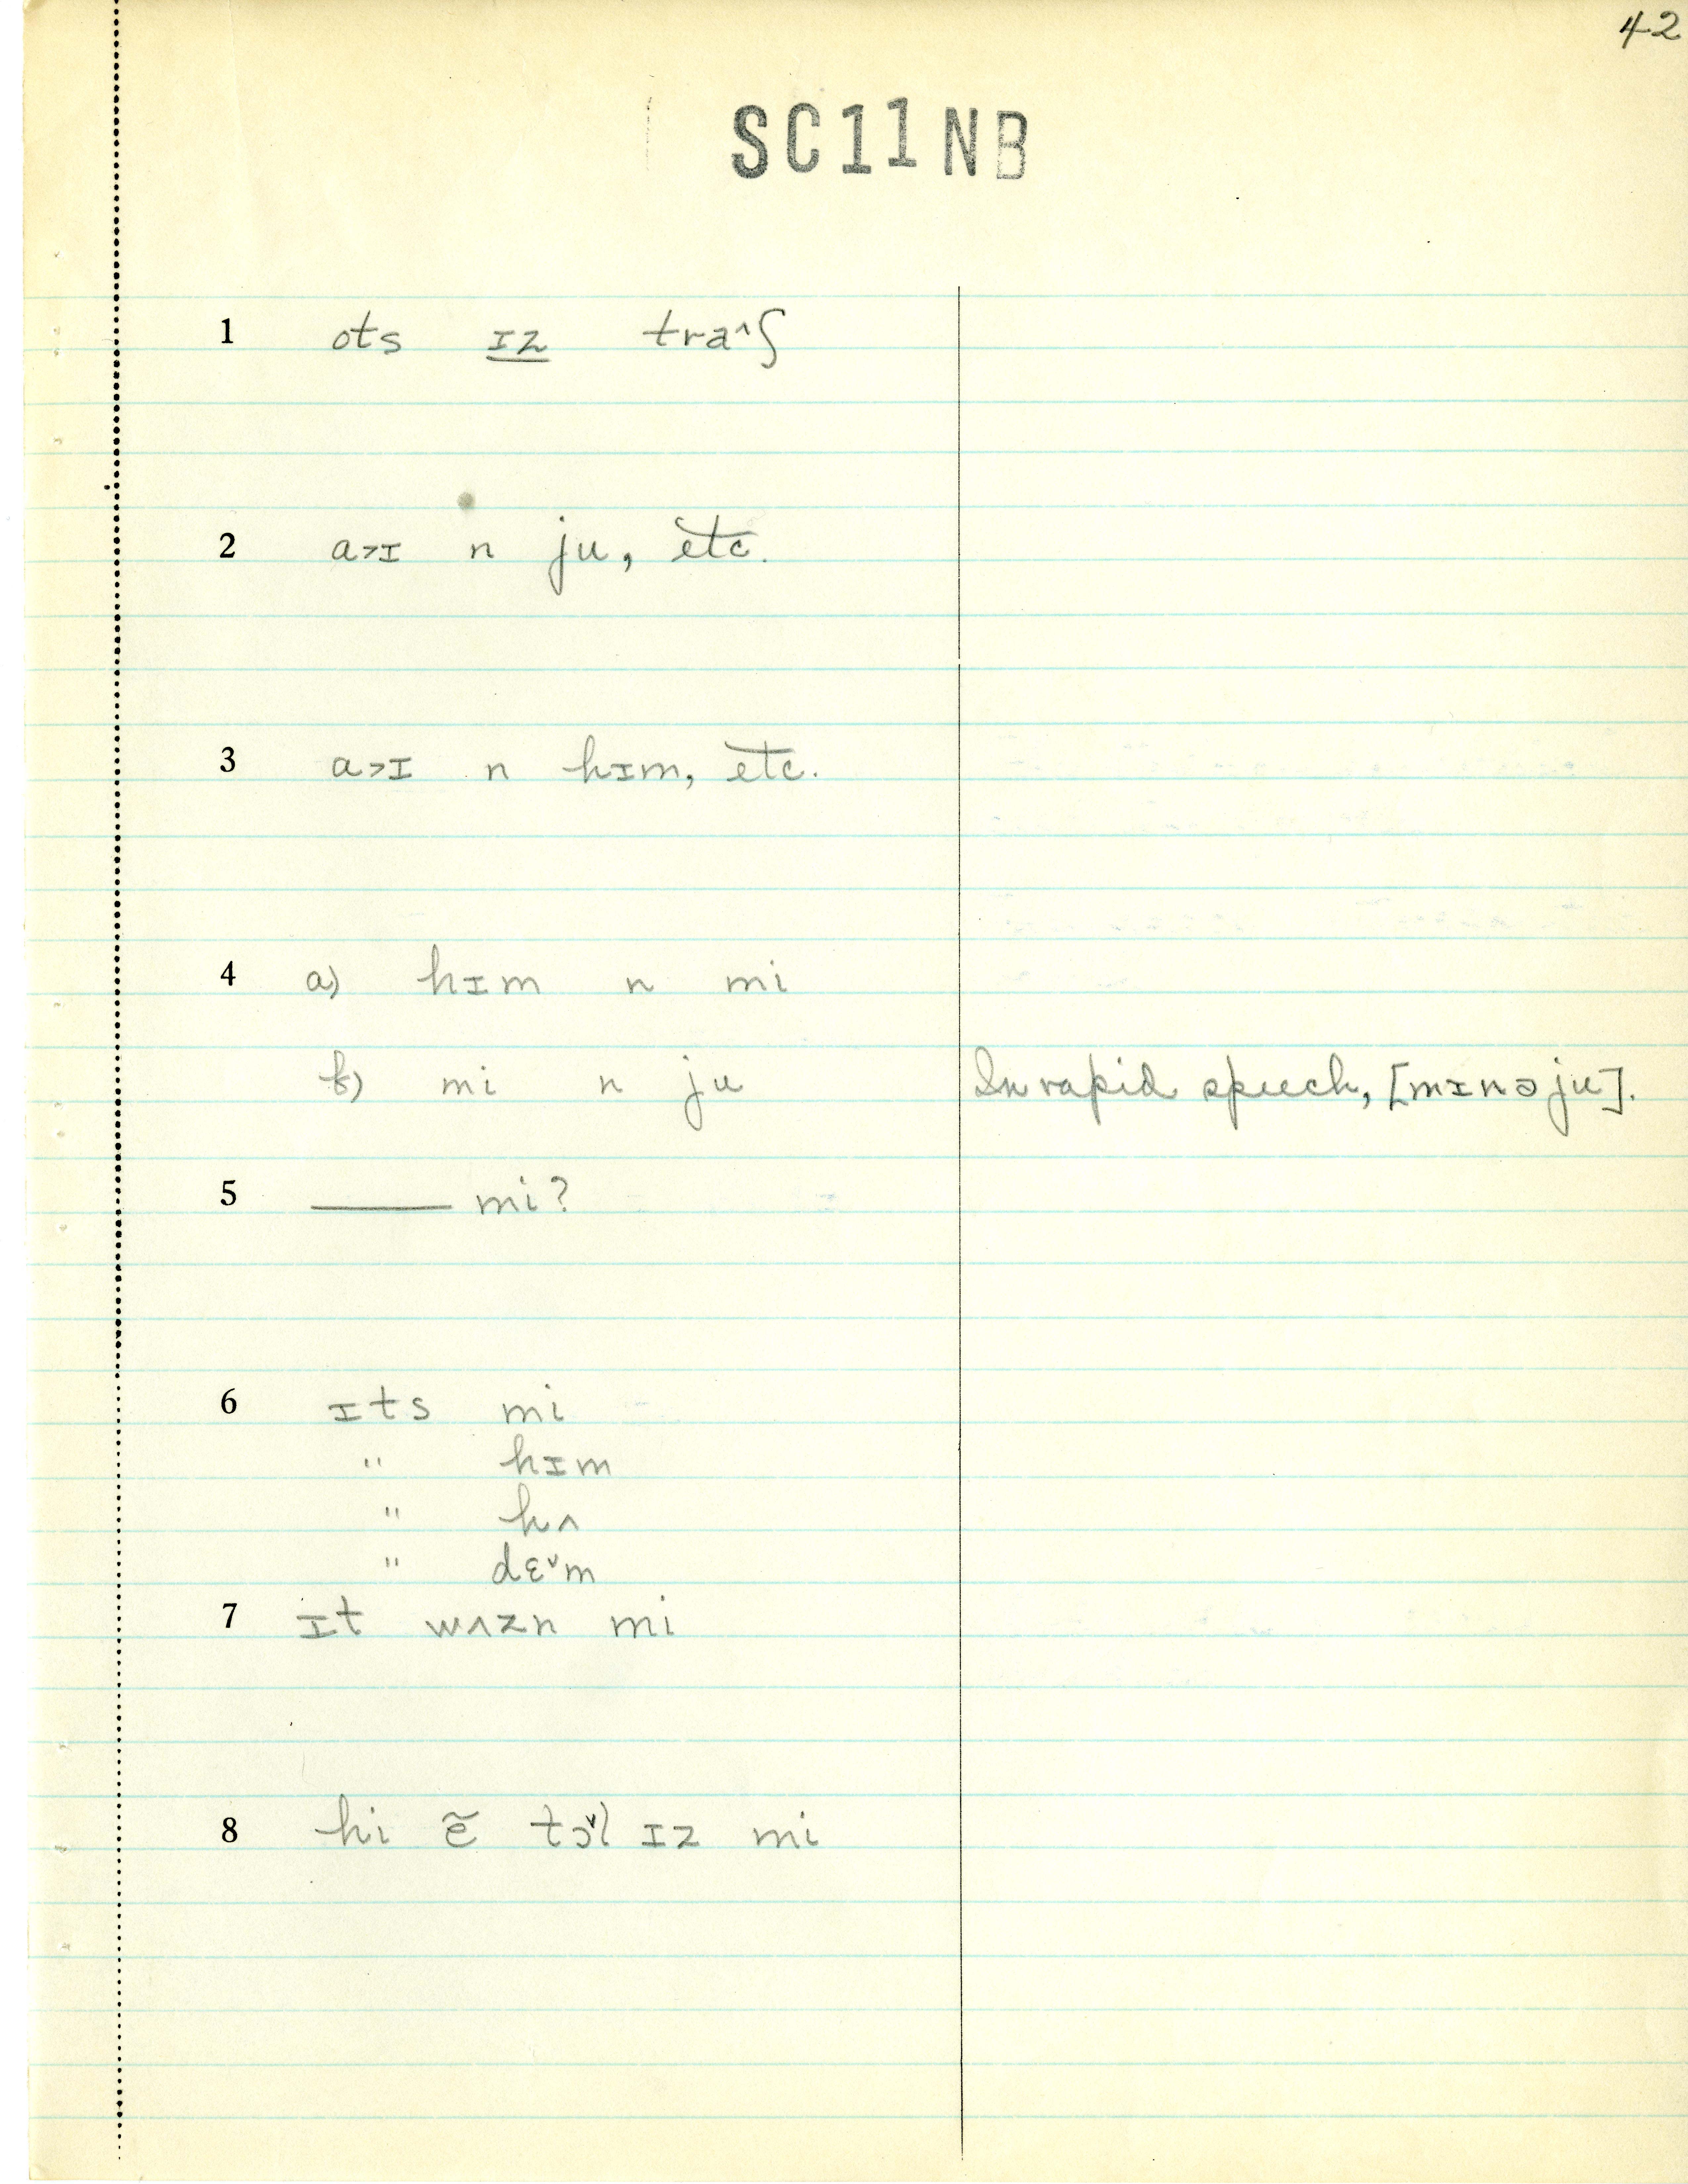 42
SC11NB
1 ots ɪz tra^ʃ
2 a>ɪ n ju, etc.
3 a>ɪ n hɪm, etc.
4 a) hɪm n mi
b) mi n ju In rapid speech, [mɪnə ju].
5 ——— mi?
6 ɪts mi
" hɪm
" hʌ
" dɛˇm
7 ɪt wʌzn mi
8 hi ẽ tɔˇl ɪz mi